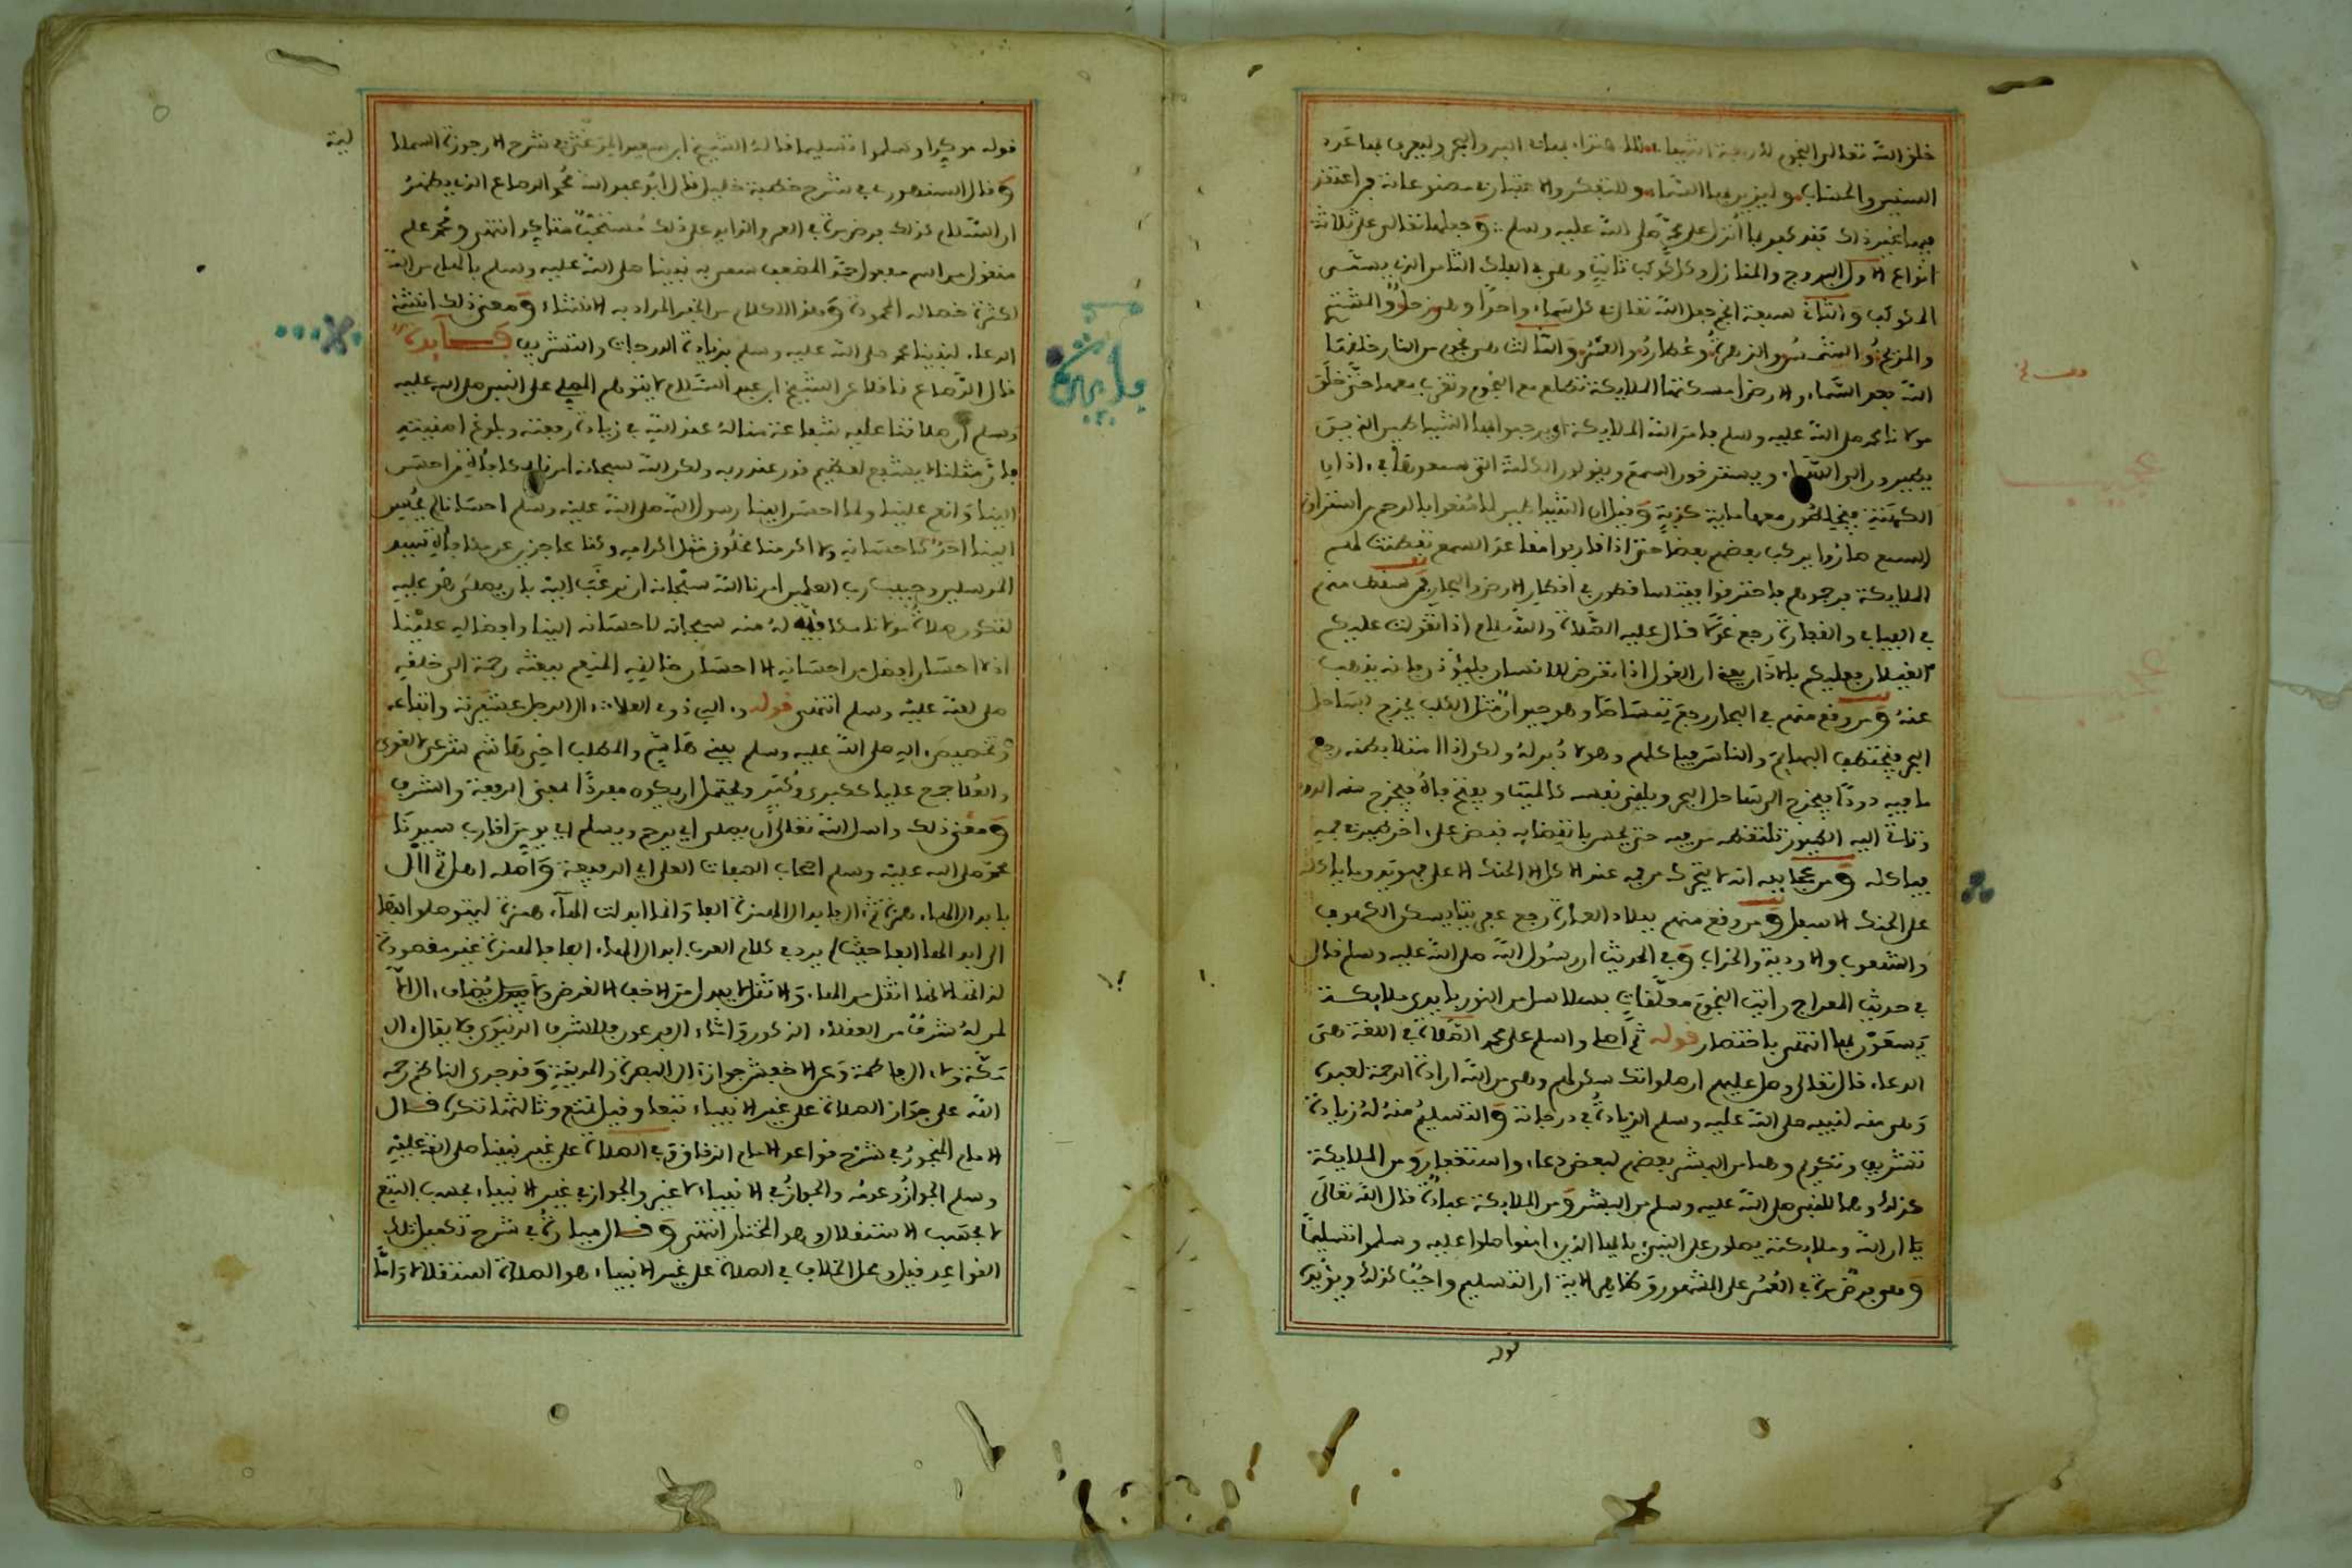 خلق الله تعالى النجوم لاربعة اشياء للاهتداء بها في البر والبحر وليعرف بها عدد
السنين والحساب وليزين بها السماء وللتفكر والاعتبار في مصنوعاته فمن اعتقد
فيها غير ذلك فقد كفر بما انزل على محمد صلى الله عليه وسلم وجعلها تعالى على ثلاثة
انواع الاول البروج والمنازل وكل كوكب ثابت وهي في الفلك الثامن الذي يسمى
المكوكب والثاني سبعة انجم جعل الله تعالى في كل سماء واحدا وهي زحل والمشتري
والمريخ والشمس والزهرة وعطارد والقمر والثالث هي نجوم من النار خلقها
الله بعد السماء والارض اسكنها الملايكة تطلع مع النجوم وتغرب معها حتى خلق
مولانا محمد صلى الله عليه وسلم فامر الله الملايكة ان يرجموا بها الشياطين الذين
يطيرون الى السماء ويسترقون السمع ويقولون الكلمة التي سمعوها في اذان
الكهنة فيخلطون معها ماية كذبة وقيل ان الشياطين لما منعوا بالرجم من استراق
السمع صاروا يركب بعضهم بعضا حتى اذا قاربوا مقاعد السمع تفطنت لهم
الملايكة فرجموهم فاحترقوا فيتساقطون في اقطار الارض والبحار فمن سقط منهم
في الفيافي والقفار رجع غولا قال عليه الصلاة والسلام اذا تغولت عليكم
الغيلان فعليكم بالاذان يعني ان الغول اذا تعرض للانسان فليؤذن فانه يذهب
عنه ومن وقع منهم في البحار رجع تمساحا وهو حيوان مثل الكلب يخرج لساحل
البحر فيختطف البهايم والناس فياكلهم وهو لا دبر له ولكن اذا امتلا بطنه رجع
ما فيه دودا فيخرج الى ساحل البحر ويلقي نفسه كالميت ويفتح فاه فيخرج منه الدود
وتاتي اليه الطيور تلتقطه من فيه حتى يحس بانقضايه فيقبض على اخر طير في فيه
فياكله ومن عجايبه انه لا يتحرك من فيه عند الاكل الا الحنك الاعلى
على الحنك الاسفل ومن وقع منهم ببلاد العمارة رجع عفريتا يسكن الكهوف
والشعوب والاودية والخراب وفي الحديث ان رسول الله صلى الله عليه وسلم قال
في حديث المعراج رايت النجوم معلقات بسلاسل من النور بايدي ملايكة
يسوقون بها انتهى باختصار قوله ثم اصلي واسلم على محمد الصلاة في اللغة هي
الدعاء قال تعالى وصل عليهم ان صلواتك سكن لهم وهي من الله ارادة الرحمة لعبده
وهي منه لنبيه صلى الله عليه وسلم الزيادة في درجاته والتسليم منه له زيادة
تشريف وتكريم وهما من البشر بعضهم لبعض دعاء واستغفار ومن الملايكة
كذلك وهما للنبي صلى الله عليه وسلم من البشر ومن الملايكة عبادة قال الله تعالى
ان الله وملايكته يصلون على النبي يا ايها الذين امنوا صلوا عليه وسلموا تسليما
وهي فرض مرة في العمر على المشهور وظاهر الاية ان التسليم واجب كذلك ويؤيده
قوله
قوله موكدا وسلموا تسليما قاله الشيخ ابن سعيد المرغيثي في شرح الارجوزة
وقال السنهوري في شرح خطبة خليل قال ابو عبد الله محمد الرصاع الذي يظهر
ان السلام كذلك فرض مرة في العمر والزايد على ذلك مستحب متاكد انتهى ومحمد علم
منقول من اسم مفعول حمد المضعف سمي به نبينا صلى الله عليه وسلم بالهام من الله
لكثرة خصاله المحمودة وهذا الكلام من الخبر المراد به الانشاء ومعنى ذلك انشئ
الدعاء لنبينا محمد صلى الله عليه وسلم بزيادة الدرجات والتشريف فايدة
قال الرصاع ناقلا عن الشيخ ابن عبد السلام لا يتوهم المصلي على النبي صلى الله عليه
وسلم ان صلاتنا عليه شفاعة منا له عند الله في زيادة رفعته وبلوغ امنيته
فان مثلنا لا يشفع لعظيم قدر عند ربه ولكن الله سبحانه امرنا بمكافاة من احسن
الينا وانعم علينا ولما احسن الينا رسول الله صلى الله عليه وسلم احسانا لم يحسن
الينا احد كاحسانه ولا اكرمنا مخلوق مثل اكرامه وكنا عاجزين عن مكافاة سيد
المرسلين وحبيب رب العلمين امرنا الله سبحانه ان نرغب اليه بان يصلي هو عليه
لتكون صلاة مولانا مكافاة له منه سبحانه لاحسانه الينا وافضاله علينا
اذ لا احسان افضل من احسانه الا احسان خالقه المنعم ببعثه رحمة الى خلقه
صلى الله عليه وسلم انتهى قوله وءاله ذوي العلاء ال الرجل عشيرته واتباعه
وتخصيص ءاله صلى الله عليه وسلم ببني هاشم والمطلب اخي هاشم شرعي لا لغوي
والعلا جمع عليا ككبرى وكبر ويحتمل ان يكون مفردا بمعنى الرفعة والشرف
ومعنى ذلك واسال الله تعالى ان يصلي اي يرحم ويسلم اي يومن اقارب سيدنا
محمد صلى الله عليه وسلم اصحاب الصفات العلى اي الرفيعة واصله اهل ثم اال
بابدال الهاء همزة ثم ءال بابدال الهمزة الفا وانما ابدلت الهاء همزة ليتوصلوا بها
الى ابدالها الفا حيث لم يرد في كلام العرب ابدال الهاء الفا فالهمزة غير مقصودة
لذاتها لانها اثقل من الهاء والاثقل لا يبدل من الاخف الا لغرض ولا يضاف ءال الا
لمن له شرف من العقلاء الذكور واما ءال فرعون فللشرف الدنيوي ولا يقال ءال
مكة ولا ءال فاطمة وعن الاخفش جواز ءال البصرة والمدينة وقد جرى الناظم رحمه
الله على جواز الصلاة على غير الانبياء تبعا وقيل تمنع وثالثها تكره قال
الامام المنجور في شرح قواعد الامام الزقاق وفي الصلاة على غير نبينا صلى الله عليه
وسلم الجواز وعدمه والجواز في الانبياء لا غير والجواز في غير الانبياء بحسب التبع
لا بحسب الاستقلال وهو المختار انتهى وقال ميارة في شرح تكميل تلك
القواعد قيل ومحل الخلاف في الصلاة على غير الانبياء هو الصلاة استقلالا واما
فايدة